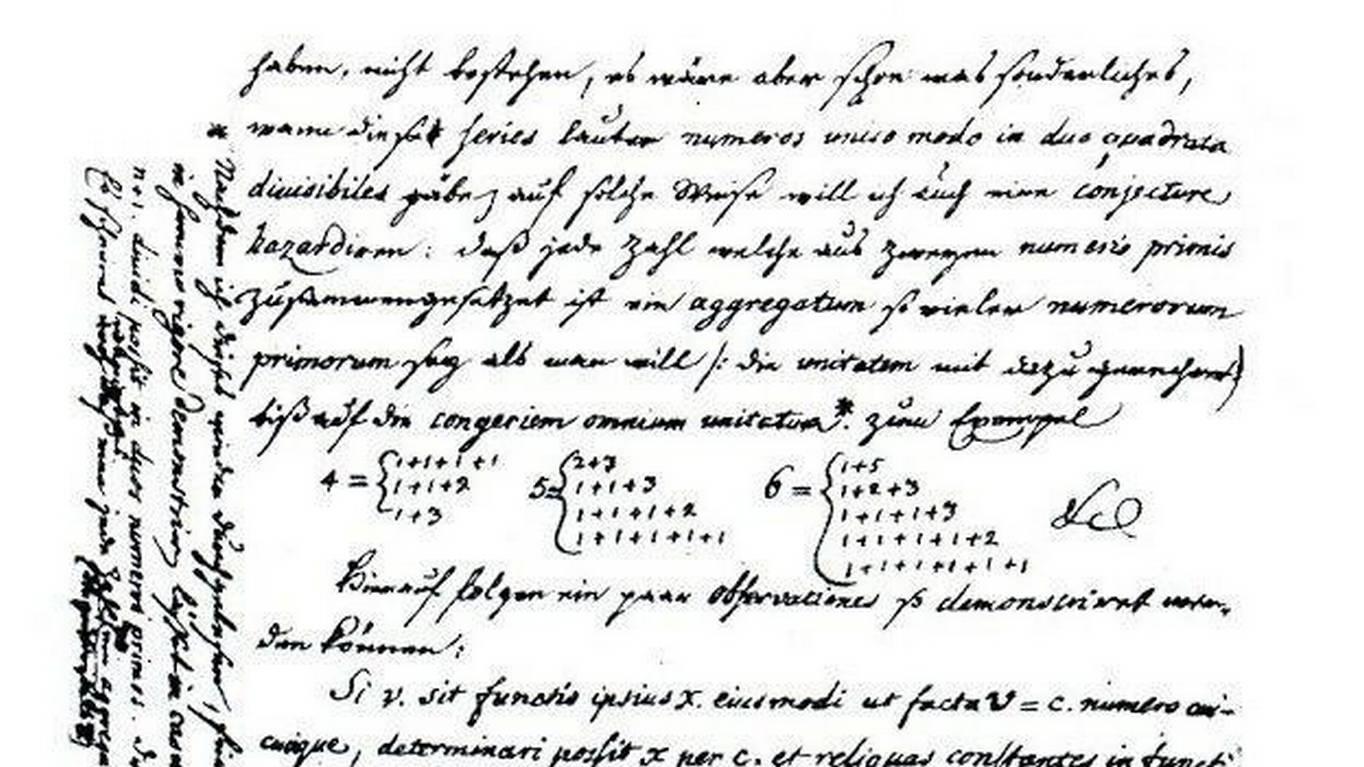 haben, nicht bestehen, es wäre aber schon was sonderliches,
wann diese series lauter numeros unico modo in duo quadrata
divisibiles gäbe; auf solche Weise will ich auch eine conjecture
hazardiren: daß jede Zahl welche aus zweyen numeris primis
zusammengesetzet ist ein aggregatum so vieler numerorum
primorum sey als man will /: die unitatem mit dazu gerechnet)
biß auf die congeriem omnium unitatum*. zum Exempel
4 = { 1+1+1+1
1+1+2
1+3
5 = { 2+3
1+1+3
1+1+1+2
1+1+1+1+1
6 = { 1+5
1+2+3
1+1+1+3
1+1+1+1+2
1+1+1+1+1+1
&c
Hierauf folgen ein paar observationes so demonstriret wer-
den können:
Si v. sit functio ipsius x. eiusmodi ut facta v = c. numero cui-
cunque, determinari possit x per c. et reliquas constantes in functi
* Nachdem ich dieses wieder durchgelesen,
in summo rigore demonstriren läßet in casu
n+1. dividi possit in duos numeros primos.
Es scheinet daß eine jede Zahl ein aggrega